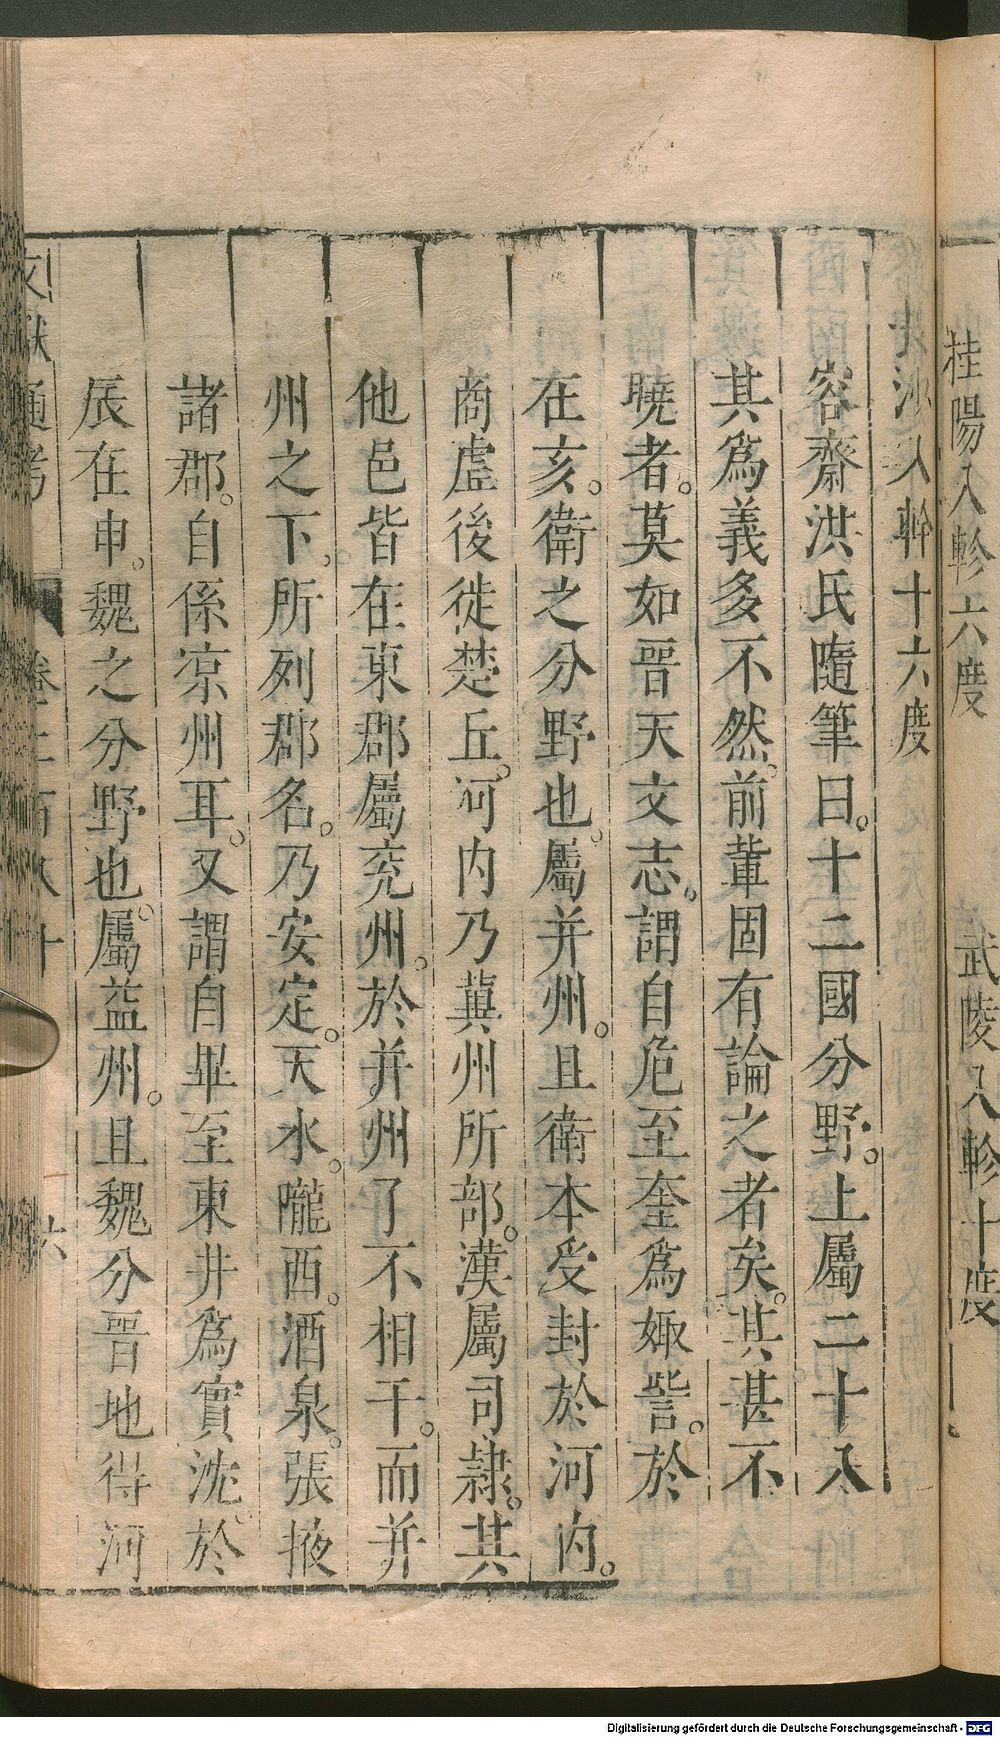 桂陽入軫六度　武陵入軫十度
長沙入軫十六度
容齋洪氏隨筆曰。十二國分野。上屬二十八
其爲義多不然。前輩固有論之者矣。其甚不
曉者。莫如晉天文志。謂自危至奎爲娵訾。於
在亥。衛之分野也。屬并州。且衛本受封於河內。
商虛後徙楚丘。河內乃冀州所部。漢屬司隷。其
他邑皆在東郡屬兖州。於并州了不相干。而并
州之下。所列郡名。乃安定。天水。隴西。酒泉。張掖
諸郡。自係凉州耳。又謂自畢至東井爲實沈。於
辰在申。魏之分野也。屬益州。且魏分晉地得河
文獻通考　卷二百八十　六
Digitalisierung gefördert durch die Deutsche Forschungsgemeinschaft - DFG